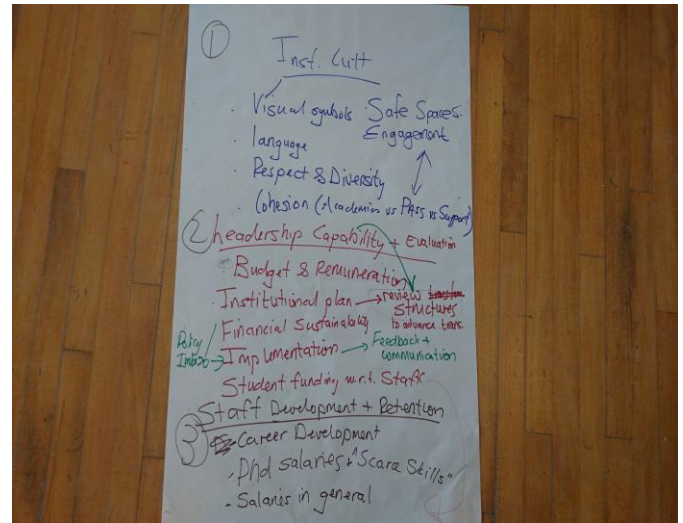 1
Inst. Cult
. Visual symbols . Safe Spaces.
Engagement
. language
. Respect & Diversity
. Cohesion (Academics vs PASS vs Support)
2 Leadership Capability + Evaluation
. Budget & Remuneration
. Institutional plan → review
structures
to advance trans.
Financial Sustainability
Policy
→ Implementation → Feedback +
communication
Student funding w.r.t. Staff
Staff Development + Retention
3
- Career Development
- Phd salaries + "Scarce Skills"
- Salaries in general